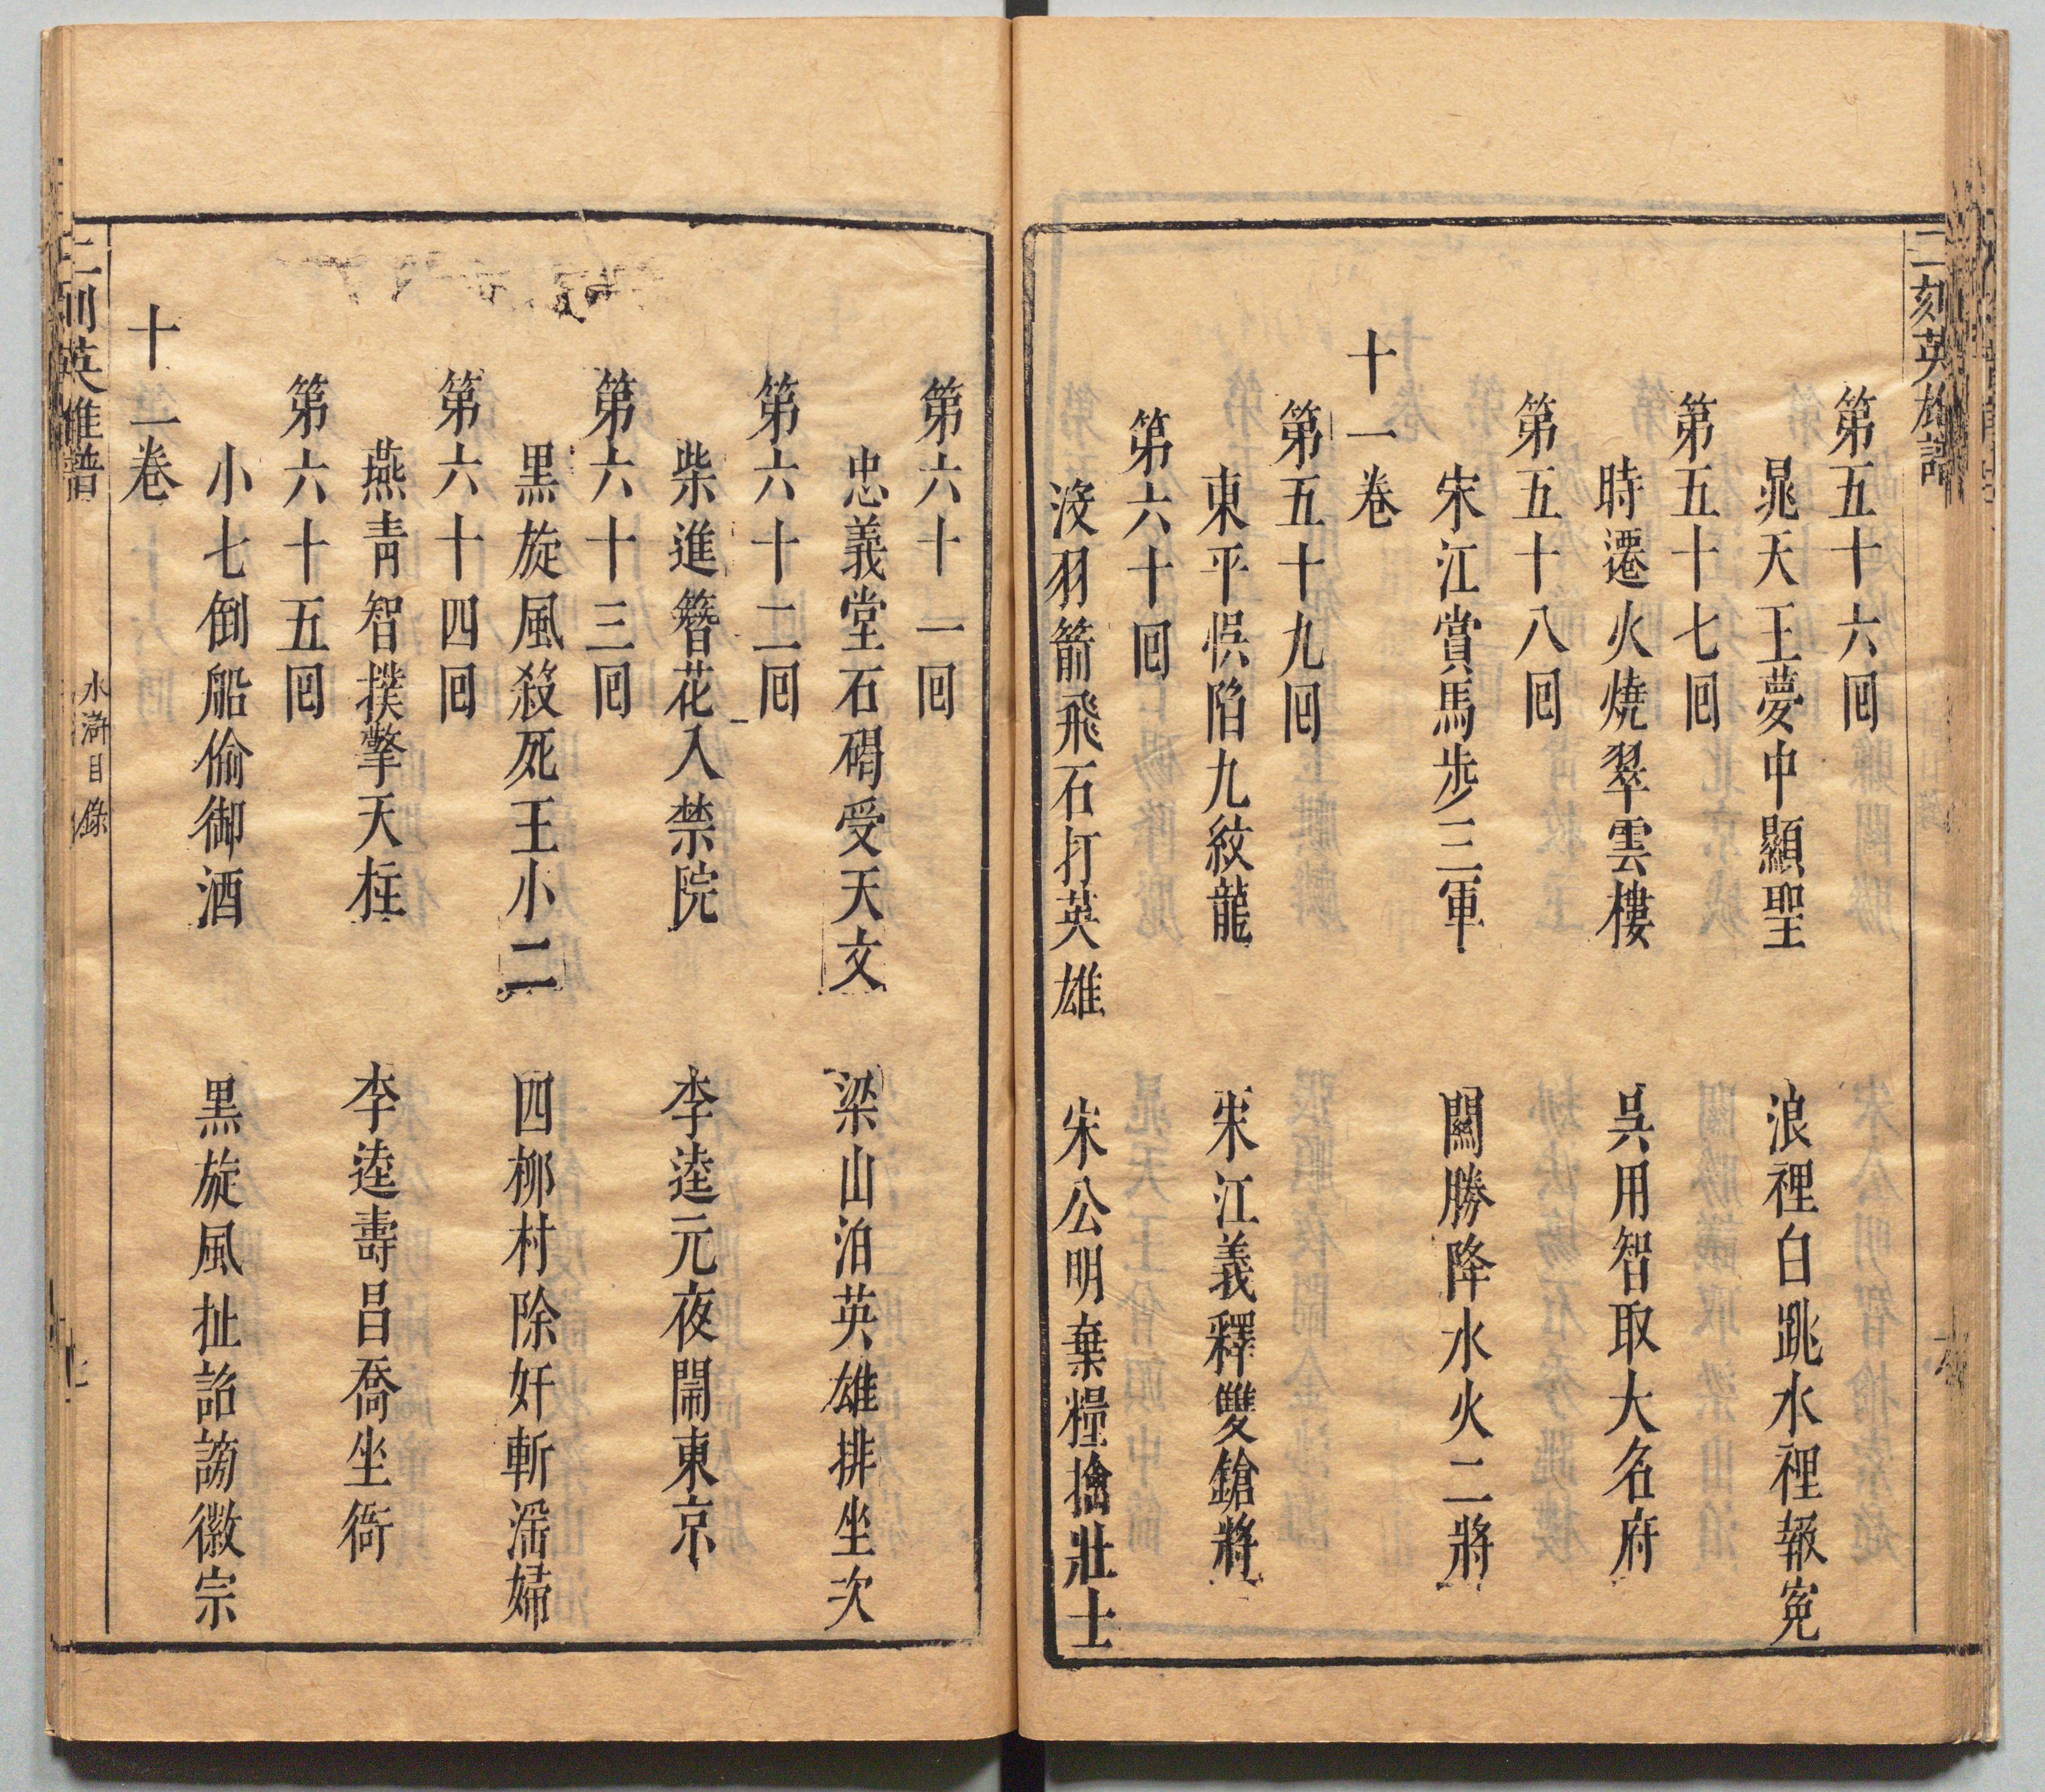 二刻英雄譜
第五十六囘
晁天王夢中顯聖　浪裡白跳水裡報寃
第五十七囘
時遷火燒翠雲樓　吳用智取大名府
第五十八囘
宋江賞馬步三軍　關勝降水火二將
十一卷
第五十九囘
東平悞陷九紋龍　宋江義釋雙鎗將
第六十囘
沒羽箭飛石打英雄　宋公明棄糧擒壯士
第六十一囘
忠義堂石碣受天文　梁山泊英雄排坐次
第六十二囘
柴進簪花入禁院　李逵元夜鬧東京
第六十三囘
黑旋風殺死王小二　四柳村除奸斬滛婦
第六十四囘
燕青智撲擎天柱　李逵壽昌喬坐衙
第六十五囘
小七倒船偷御酒　黑旋風扯詔謗徽宗
十一卷
二刻英雄譜
水滸目錄